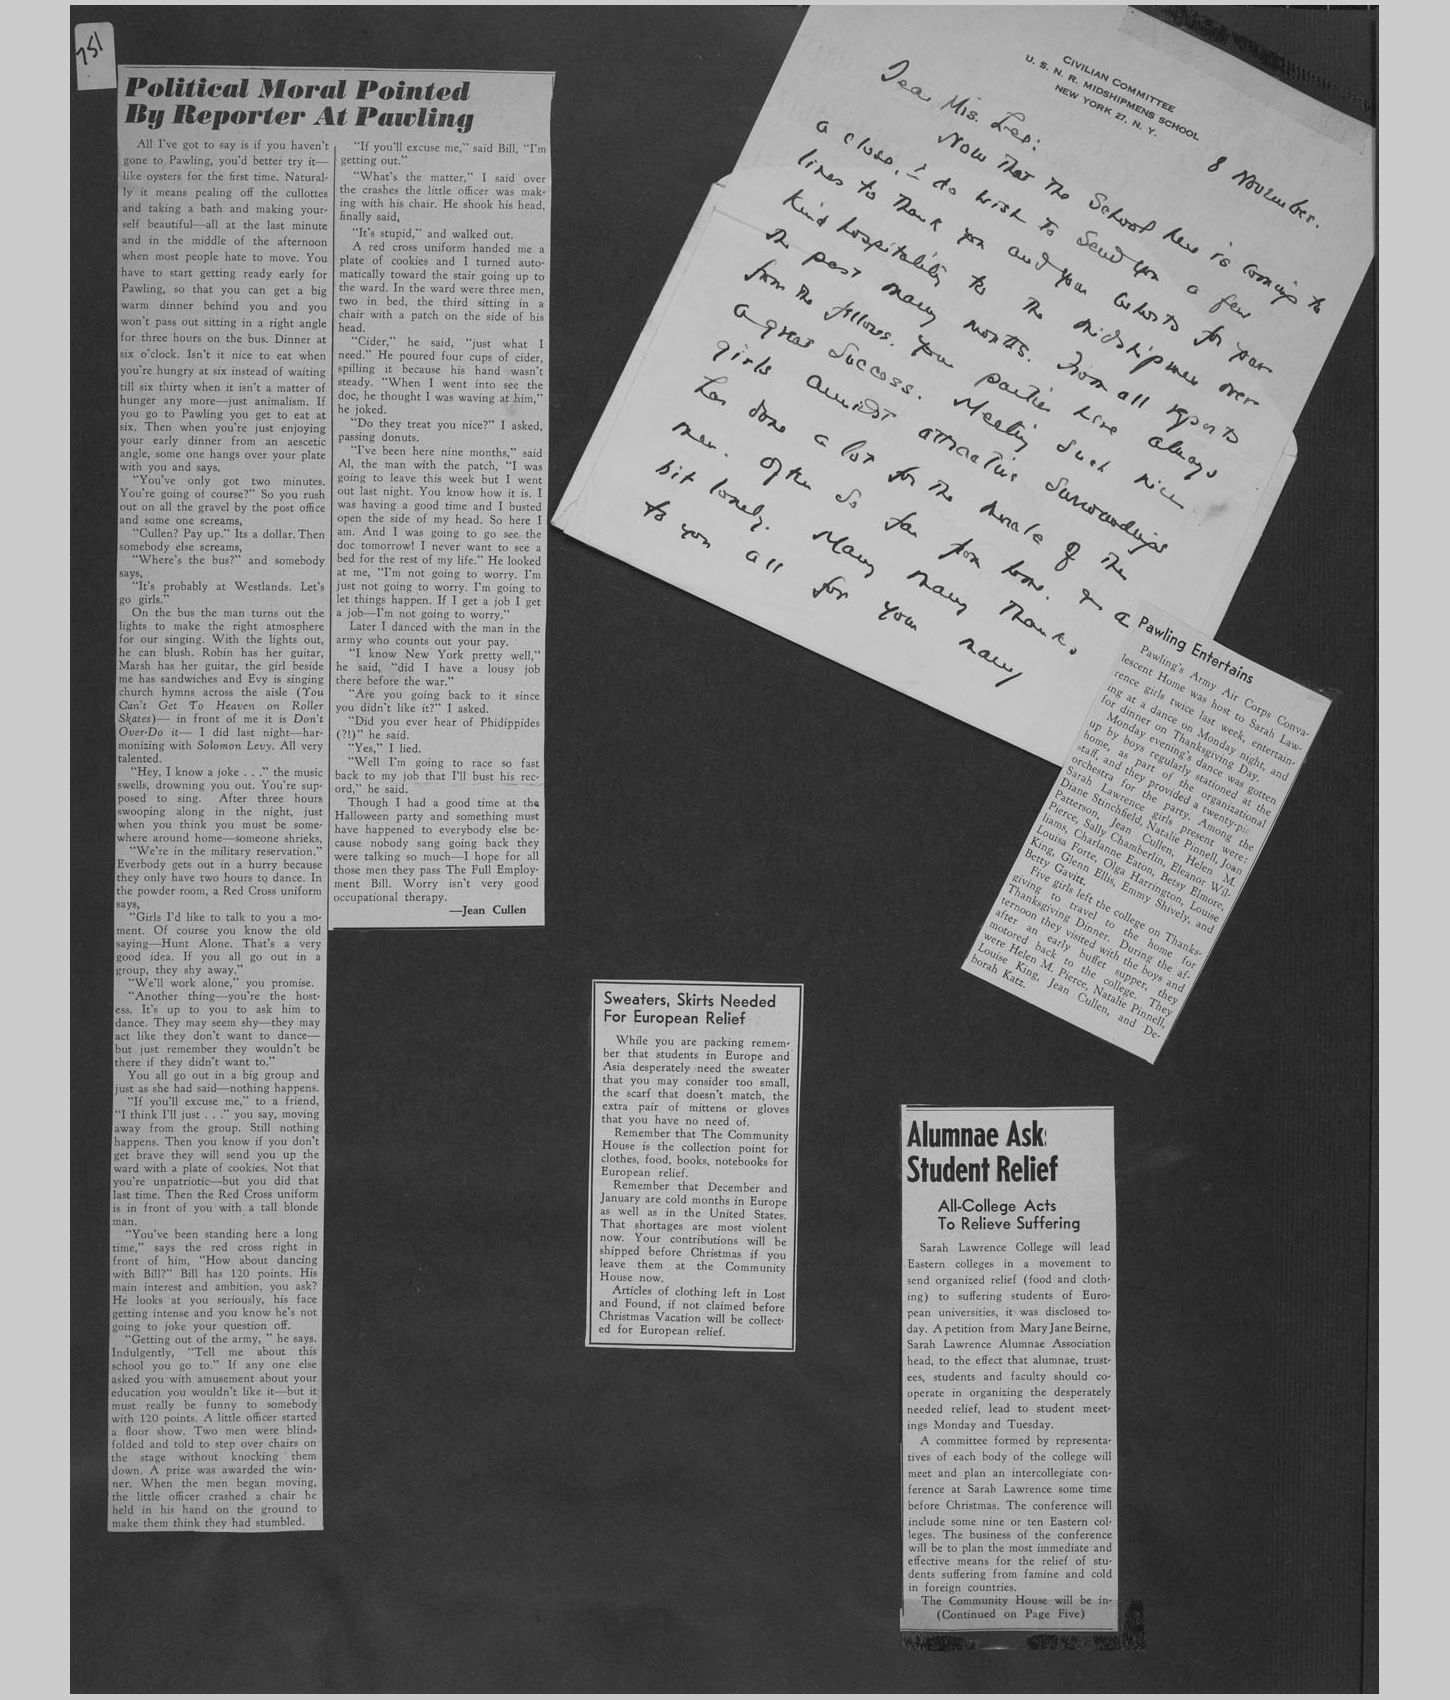 751
Political Moral Pointed
By Reporter At Pawling
All I've got to say is if you haven't
gone to Pawling, you'd better try it—
like oysters for the first time. Natural-
ly it means pealing off the cullottes
and taking a bath and making your-
self beautiful—all at the last minute
and in the middle of the afternoon
when most people hate to move. You
have to start getting ready early for
Pawling, so that you can get a big
warm dinner behind you and you
won't pass out sitting in a right angle
for three hours on the bus. Dinner at
six o'clock. Isn't it nice to eat when
you're hungry at six instead of waiting
till six thirty when it isn't a matter of
hunger any more—just animalism. If
you go to Pawling you get to eat at
six. Then when you're just enjoying
your early dinner from an aescetic
angle, some one hangs over your plate
with you and says,
"You've only got two minutes.
You're going of course?" So you rush
out on all the gravel by the post office
and some one screams,
"Cullen? Pay up." Its a dollar. Then
somebody else screams,
"Where's the bus?" and somebody
says,
"It's probably at Westlands. Let's
go girls."
On the bus the man turns out the
lights to make the right atmosphere
for our singing. With the lights out,
he can blush. Robin has her guitar,
Marsh has her guitar, the girl beside
me has sandwiches and Evy is singing
church hymns across the aisle (You
Can't Get To Heaven on Roller
Skates)— in front of me it is Don't
Over-Do it— I did last night—har-
monizing with Solomon Levy. All very
talented.
"Hey, I know a joke . . ." the music
swells, drowning you out. You're sup-
posed to sing. After three hours
swooping along in the night, just
when you think you must be some-
where around home—someone shrieks,
"We're in the military reservation."
Everbody gets out in a hurry because
they only have two hours to dance. In
the powder room, a Red Cross uniform
says,
"Girls I'd like to talk to you a mo-
ment. Of course you know the old
saying—Hunt Alone. That's a very
good idea. If you all go out in a
group, they shy away."
"We'll work alone," you promise.
"Another thing—you're the host-
ess. It's up to you to ask him to
dance. They may seem shy—they may
act like they don't want to dance—
but just remember they wouldn't be
there if they didn't want to."
You all go out in a big group and
just as she had said—nothing happens.
"If you'll excuse me," to a friend,
"I think I'll just . . ." you say, moving
away from the group. Still nothing
happens. Then you know if you don't
get brave they will send you up the
ward with a plate of cookies. Not that
you're unpatriotic—but you did that
last time. Then the Red Cross uniform
is in front of you with a tall blonde
man.
"You've been standing here a long
time," says the red cross right in
front of him, "How about dancing
with Bill?" Bill has 120 points. His
main interest and ambition, you ask?
He looks at you seriously, his face
getting intense and you know he's not
going to joke your question off.
"Getting out of the army, " he says.
Indulgently, "Tell me about this
school you go to." If any one else
asked you with amusement about your
education you wouldn't like it—but it
must really be funny to somebody
with 120 points. A little officer started
a floor show. Two men were blind-
folded and told to step over chairs on
the stage without knocking them
down. A prize was awarded the win-
ner. When the men began moving,
the little officer crashed a chair he
held in his hand on the ground to
make them think they had stumbled.
"If you'll excuse me," said Bill, "I'm
getting out."
"What's the matter," I said over
the crashes the little officer was mak-
ing with his chair. He shook his head,
finally said,
"It's stupid," and walked out.
A red cross uniform handed me a
plate of cookies and I turned auto-
matically toward the stair going up to
the ward. In the ward were three men,
two in bed, the third sitting in a
chair with a patch on the side of his
head.
"Cider," he said, "just what I
need." He poured four cups of cider,
spilling it because his hand wasn't
steady. "When I went into see the
doc, he thought I was waving at him,"
he joked.
"Do they treat you nice?" I asked,
passing donuts.
"I've been here nine months," said
Al, the man with the patch, "I was
going to leave this week but I went
out last night. You know how it is. I
was having a good time and I busted
open the side of my head. So here I
am. And I was going to go see the
doc tomorrow! I never want to see a
bed for the rest of my life." He looked
at me, "I'm not going to worry. I'm
just not going to worry. I'm going to
let things happen. If I get a job I get
a job—I'm not going to worry."
Later I danced with the man in the
army who counts out your pay.
"I know New York pretty well,"
he said, "did I have a lousy job
there before the war."
"Are you going back to it since
you didn't like it?" I asked.
"Did you ever hear of Phidippides
(?!)" he said.
"Yes," I lied.
"Well I'm going to race so fast
back to my job that I'll bust his rec-
ord," he said.
Though I had a good time at the
Halloween party and something must
have happened to everybody else be-
cause nobody sang going back they
were talking so much—I hope for all
those men they pass The Full Employ-
ment Bill. Worry isn't very good
occupational therapy.
—Jean Cullen
CIVILIAN COMMITTEE
U. S. N. R. MIDSHIPMENS SCHOOL
NEW YORK 27, N. Y.
8 November.
Dear Mis. Lee:
Now that the School here is coming to
a close, I do wish to send you a few
lines to thank you and your cohorts for your
kind hospitality to the Midshipmen over
the past many months. From all reports
from the fellows, your parties have always
a great success. Meeting such nice
girls amidst attractive surroundings
has done a lot for the morale of the
men. Often so far from home, & a
bit lonely. Many many thanks,
to you all for your many
Pawling Entertains
Pawling's Army Air Corps Conva-
lescent Home was host to Sarah Law-
rence girls twice last week, entertain-
ing at a dance on Monday night, and
for dinner on Thanksgiving Day.
Monday evening's dance was gotten
up by boys regularly stationed at the
home, as part of the organizational
staff, and they provided a twenty-pic
orchestra for the party. Among the
Sarah Lawrence girls present were:
Diane Stinchfield, Natalie Pinnell, Joan
Patterson, Jean Cullen, Helen M.
Pierce, Sally Chamberlin, Eleanor Wil-
liams, Charlanne Eaton, Betsy Elmore,
Louisa Forte, Olga Harrington, Louise
King, Glenn Ellis, Emmy Shively, and
Betty Gavitt.
Five girls left the college on Thanks-
giving to travel to the home for
Thanksgiving Dinner. During the af-
ternoon they visited with the boys and
after an early buffet supper, they
motored back to the college. They
were Helen M. Pierce, Natalie Pinnell,
Louise King, Jean Cullen, and De-
borah Katz.
Sweaters, Skirts Needed
For European Relief
While you are packing remem-
ber that students in Europe and
Asia desperately need the sweater
that you may consider too small,
the scarf that doesn't match, the
extra pair of mittens or gloves
that you have no need of.
Remember that The Community
House is the collection point for
clothes, food, books, notebooks for
European relief.
Remember that December and
January are cold months in Europe
as well as in the United States.
That shortages are most violent
now. Your contributions will be
shipped before Christmas if you
leave them at the Community
House now.
Articles of clothing left in Lost
and Found, if not claimed before
Christmas Vacation will be collect-
ed for European relief.
Alumnae Ask
Student Relief
All-College Acts
To Relieve Suffering
Sarah Lawrence College will lead
Eastern colleges in a movement to
send organized relief (food and cloth-
ing) to suffering students of Euro-
pean universities, it was disclosed to-
day. A petition from Mary Jane Beirne,
Sarah Lawrence Alumnae Association
head, to the effect that alumnae, trust-
ees, students and faculty should co-
operate in organizing the desperately
needed relief, lead to student meet-
ings Monday and Tuesday.
A committee formed by representa-
tives of each body of the college will
meet and plan an intercollegiate con-
ference at Sarah Lawrence some time
before Christmas. The conference will
include some nine or ten Eastern col-
leges. The business of the conference
will be to plan the most immediate and
effective means for the relief of stu-
dents suffering from famine and cold
in foreign countries.
The Community House will be in-
(Continued on Page Five)